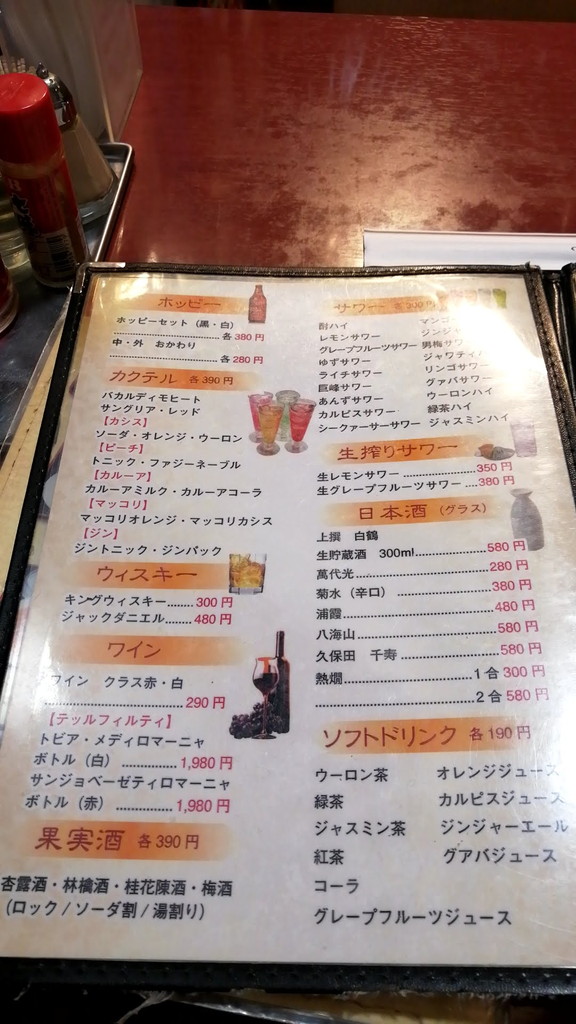 ホッピー
ホッピーセット（黒・白）
..................各380円
中・外 おかわり
..................各280円
カクテル 各390円
バカルディモヒート
サングリア・レッド
【カシス】
ソーダ・オレンジ・ウーロン
【ピーチ】
トニック・ファジーネーブル
【カルーア】
カルーアミルク・カルーアコーラ
【マッコリ】
マッコリオレンジ・マッコリカシス
【ジン】
ジントニック・ジンバック
ウィスキー
キングウィスキー........300円
ジャックダニエル........480円
ワイン
ワイン グラス赤・白
..................290円
【テッルフィルティ】
トビア・メディロマーニャ
ボトル（白）..............1,980円
サンジョベーゼティロマーニャ
ボトル（赤）..............1,980円
果実酒 各390円
杏露酒・林檎酒・桂花陳酒・梅酒
（ロック/ソーダ割/湯割り）
サワー 各290円
酎ハイ
レモンサワー
グレープフルーツサワー
ゆずサワー
ライチサワー
巨峰サワー
あんずサワー
カルピスサワー
シークァーサーサワー
マンゴ
ジンジャ
男梅サワ
ジャワティ
リンゴサワー
グァバサワー
ウーロンハイ
緑茶ハイ
ジャスミンハイ
生搾りサワー
生レモンサワー..................350円
生グレープフルーツサワー....380円
日本酒（グラス）
上撰 白鶴
生貯蔵酒 300ml..................580円
萬代光..................280円
菊水（辛口）..................380円
浦霞..................480円
八海山..................580円
久保田 千寿..................580円
熱燗..................1合300円
..................2合580円
ソフトドリンク 各190円
ウーロン茶
緑茶
ジャスミン茶
紅茶
コーラ
グレープフルーツジュース
オレンジジュース
カルピスジュース
ジンジャーエール
グアバジュース